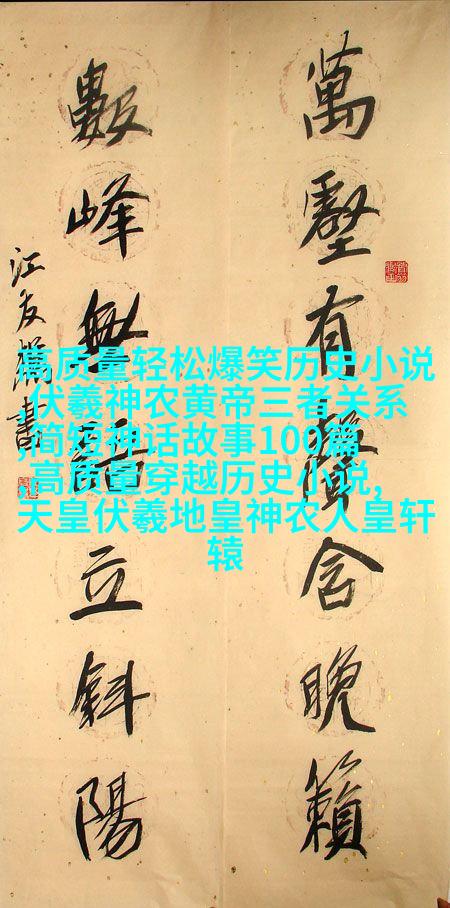 萬壑有聲含晚籟
數峰無語立斜陽
江友樵書
高质量轻松爆笑历史小说
,伏羲神农黄帝三者关系
,简短神话故事100篇
,高质量穿越历史小说,
天皇伏羲地皇神农人皇轩
辕